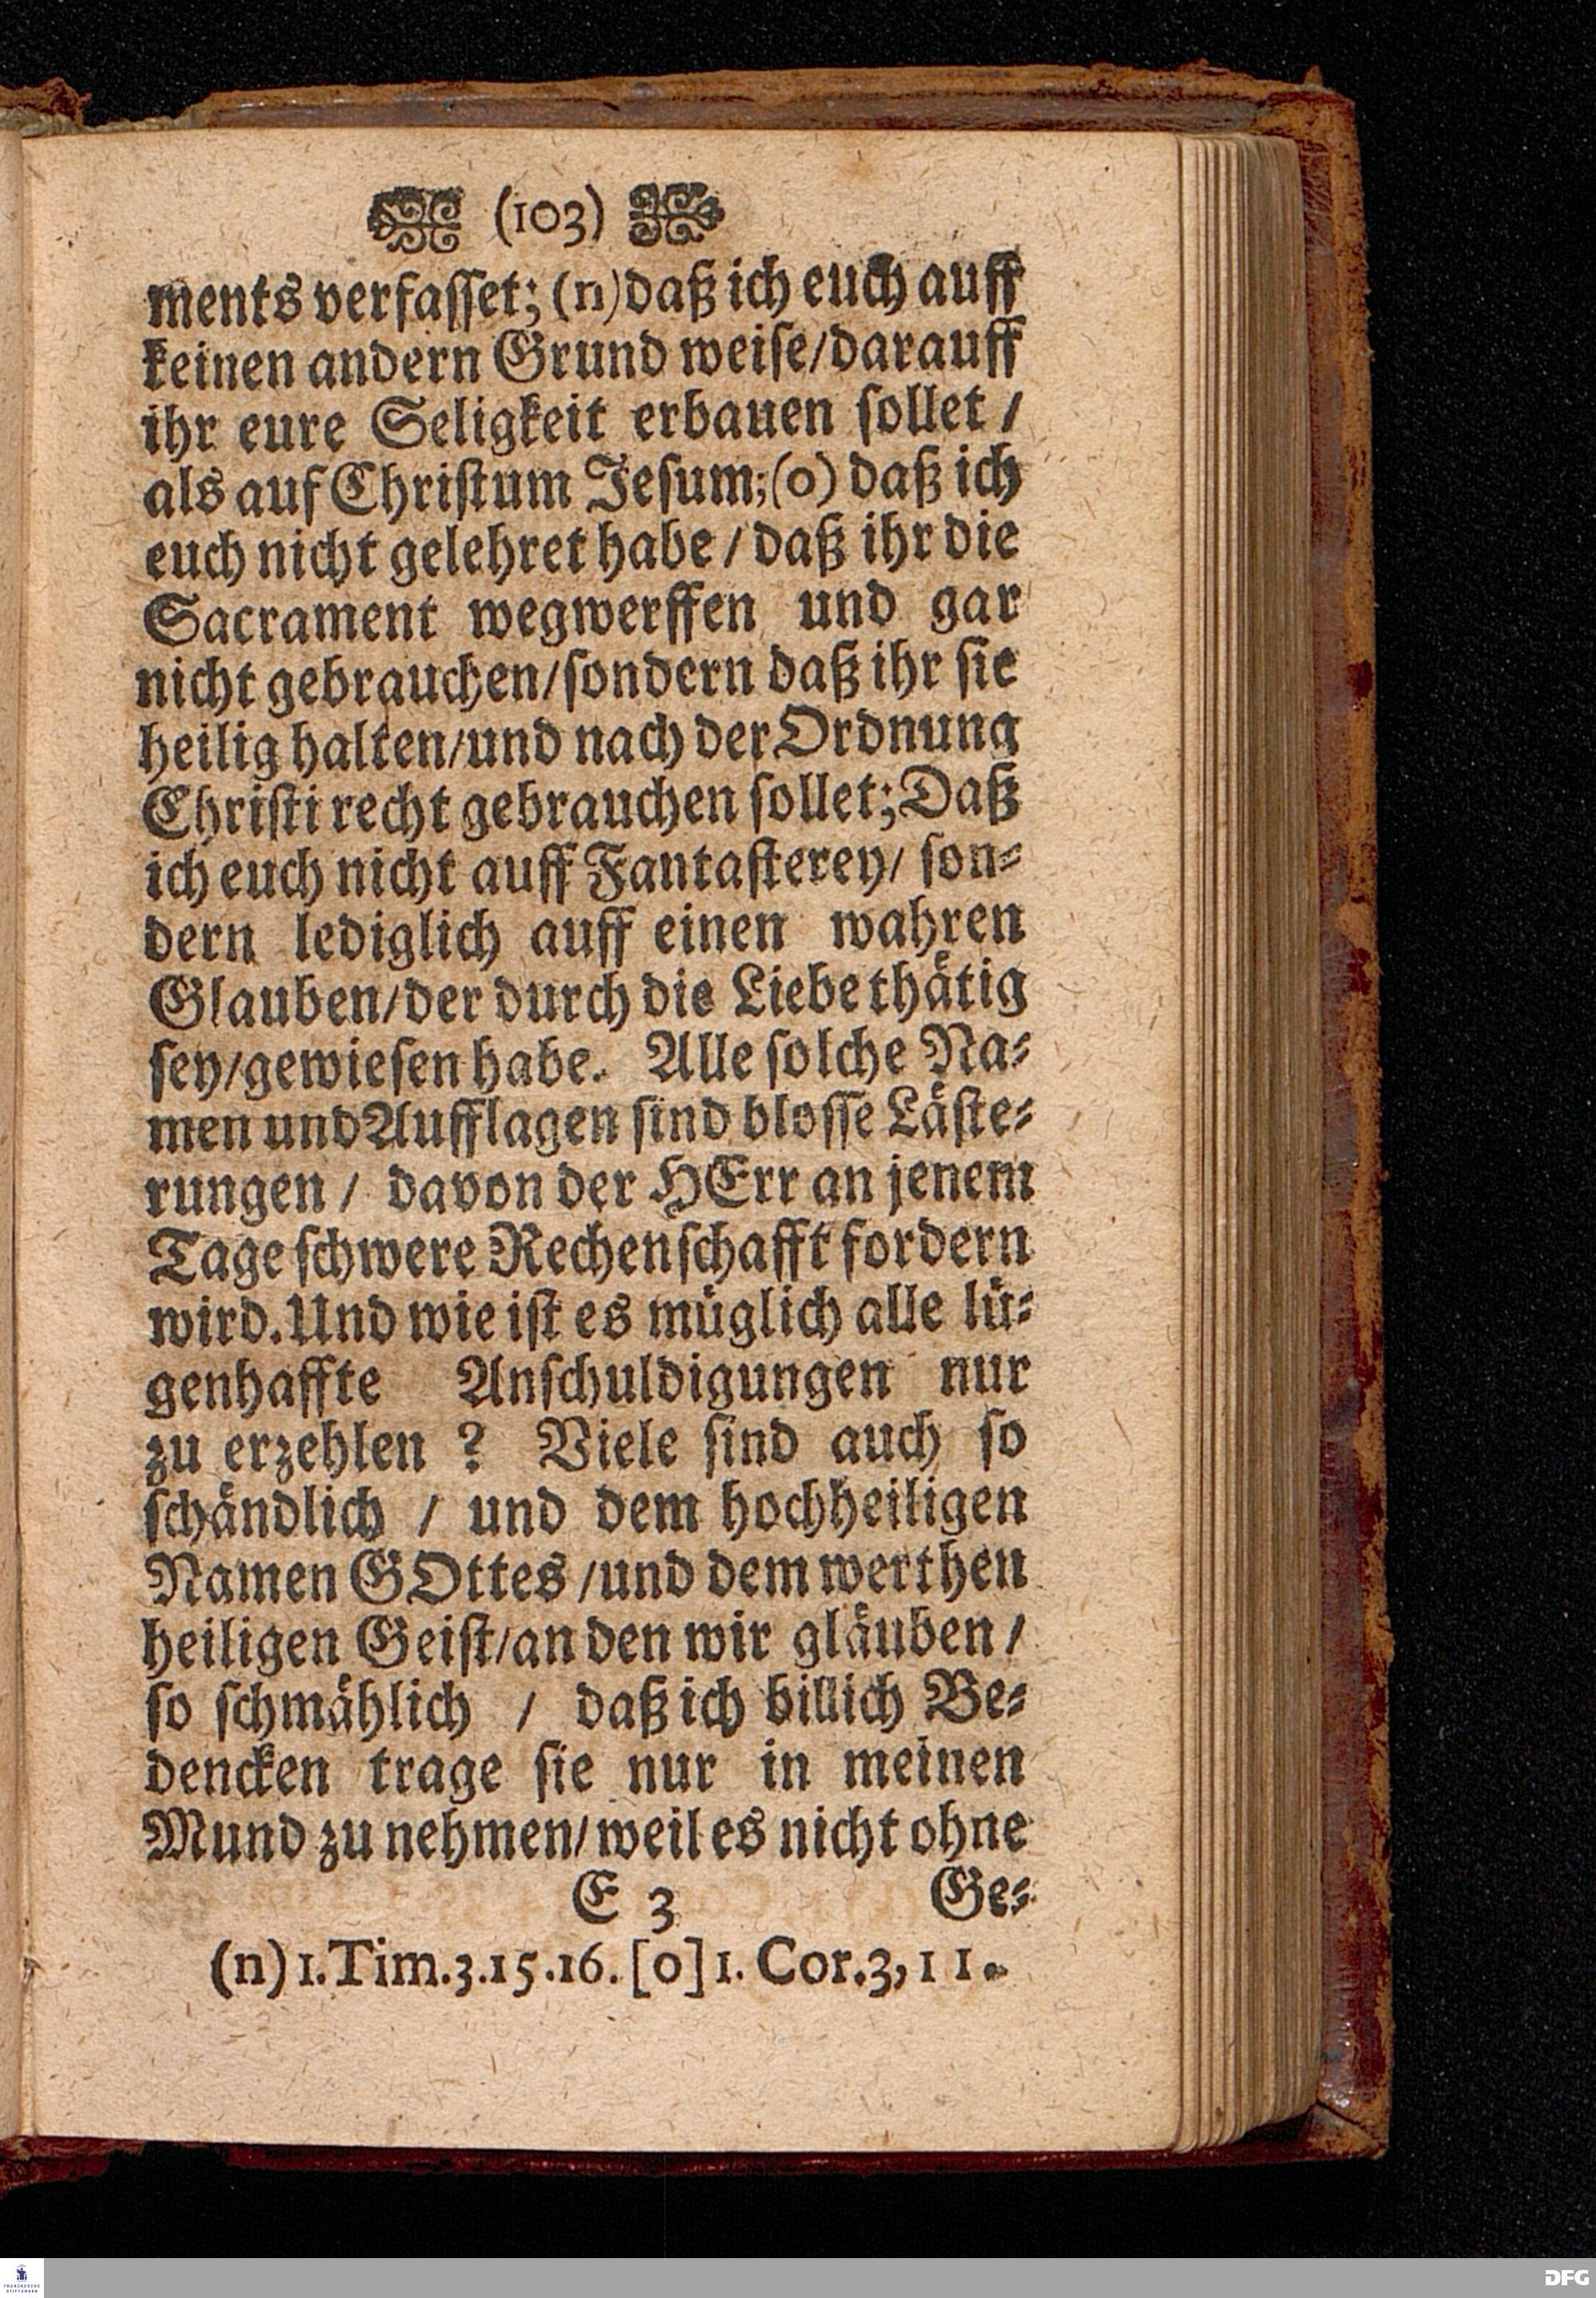 (103)
ments verfasset; (n) daß ich euch auff
keinen andern Grund weise/darauff
ihr eure Seligkeit erbauen sollet /
als auf Christum Jesum;(o) daß ich
euch nicht gelehret habe / daß ihr die
Sacrament wegwerffen und gar
nicht gebrauchen/sondern daß ihr sie
heilig halten/und nach der Ordnung
Christi recht gebrauchen sollet; Daß
ich euch nicht auff Fantasterey/ son-
dern lediglich auff einen wahren
Glauben/der durch die Liebe thätig
sey/gewiesen habe. Alle solche Na-
men und Aufflagen sind blosse Läste-
rungen / davon der HErr an jenem
Tage schwere Rechenschafft fordern
wird. Und wie ist es müglich alle lü-
genhaffte Anschuldigungen nur
zu erzehlen ? Viele sind auch so
schändlich / und dem hochheiligen
Namen GOttes /und dem werthen
heiligen Geist/an den wir gläuben /
so schmählich / daß ich billich Be-
dencken trage sie nur in meinen
Mund zu nehmen/weil es nicht ohne
E 3 Ge-
(n) 1. Tim. 3.15.16. [o] 1. Cor. 3, 11.
FRANCKESCHE STIFTUNGEN
DFG